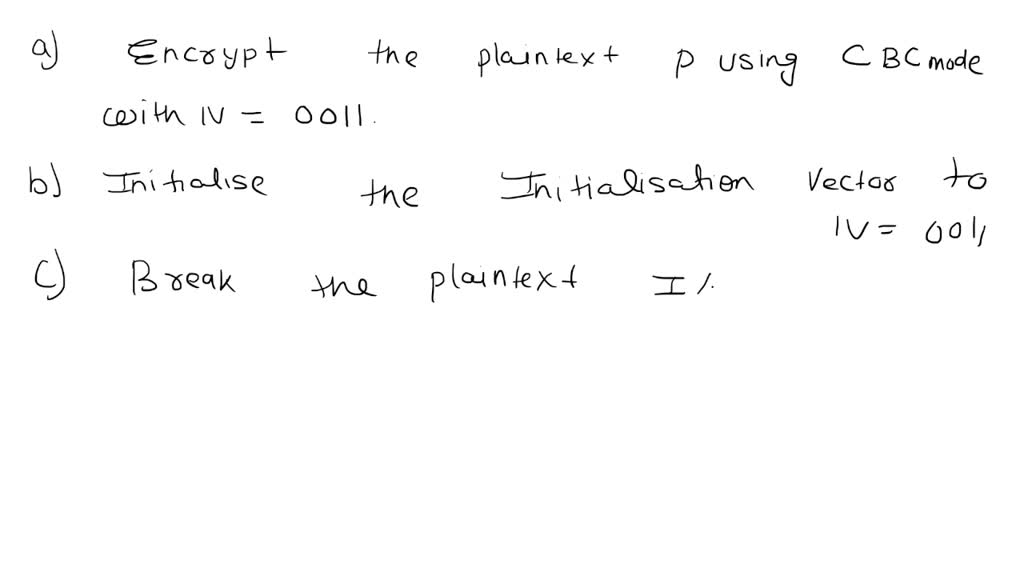 a) Encrypt the plaintext p using CBC mode
with IV = 0011.
b) Initialise the Initialisation Vector to
IV = 0011
c) Break the plaintext I